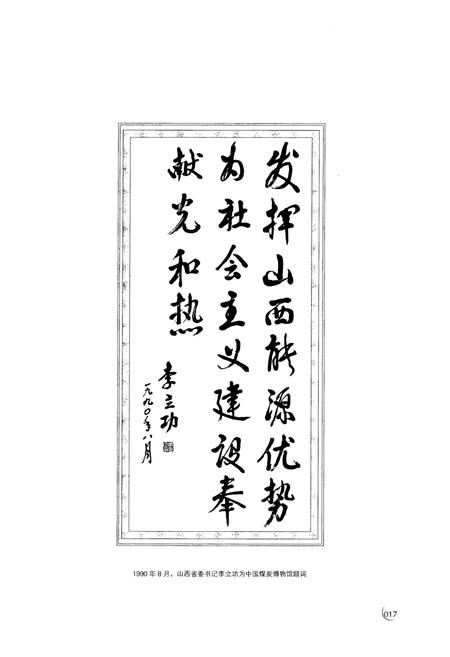 发挥山西能源优势
为社会主义建设奉
献光和热
李立功
一九九〇年八月
1990年8月，山西省委书记李立功为中国煤炭博物馆题词
017